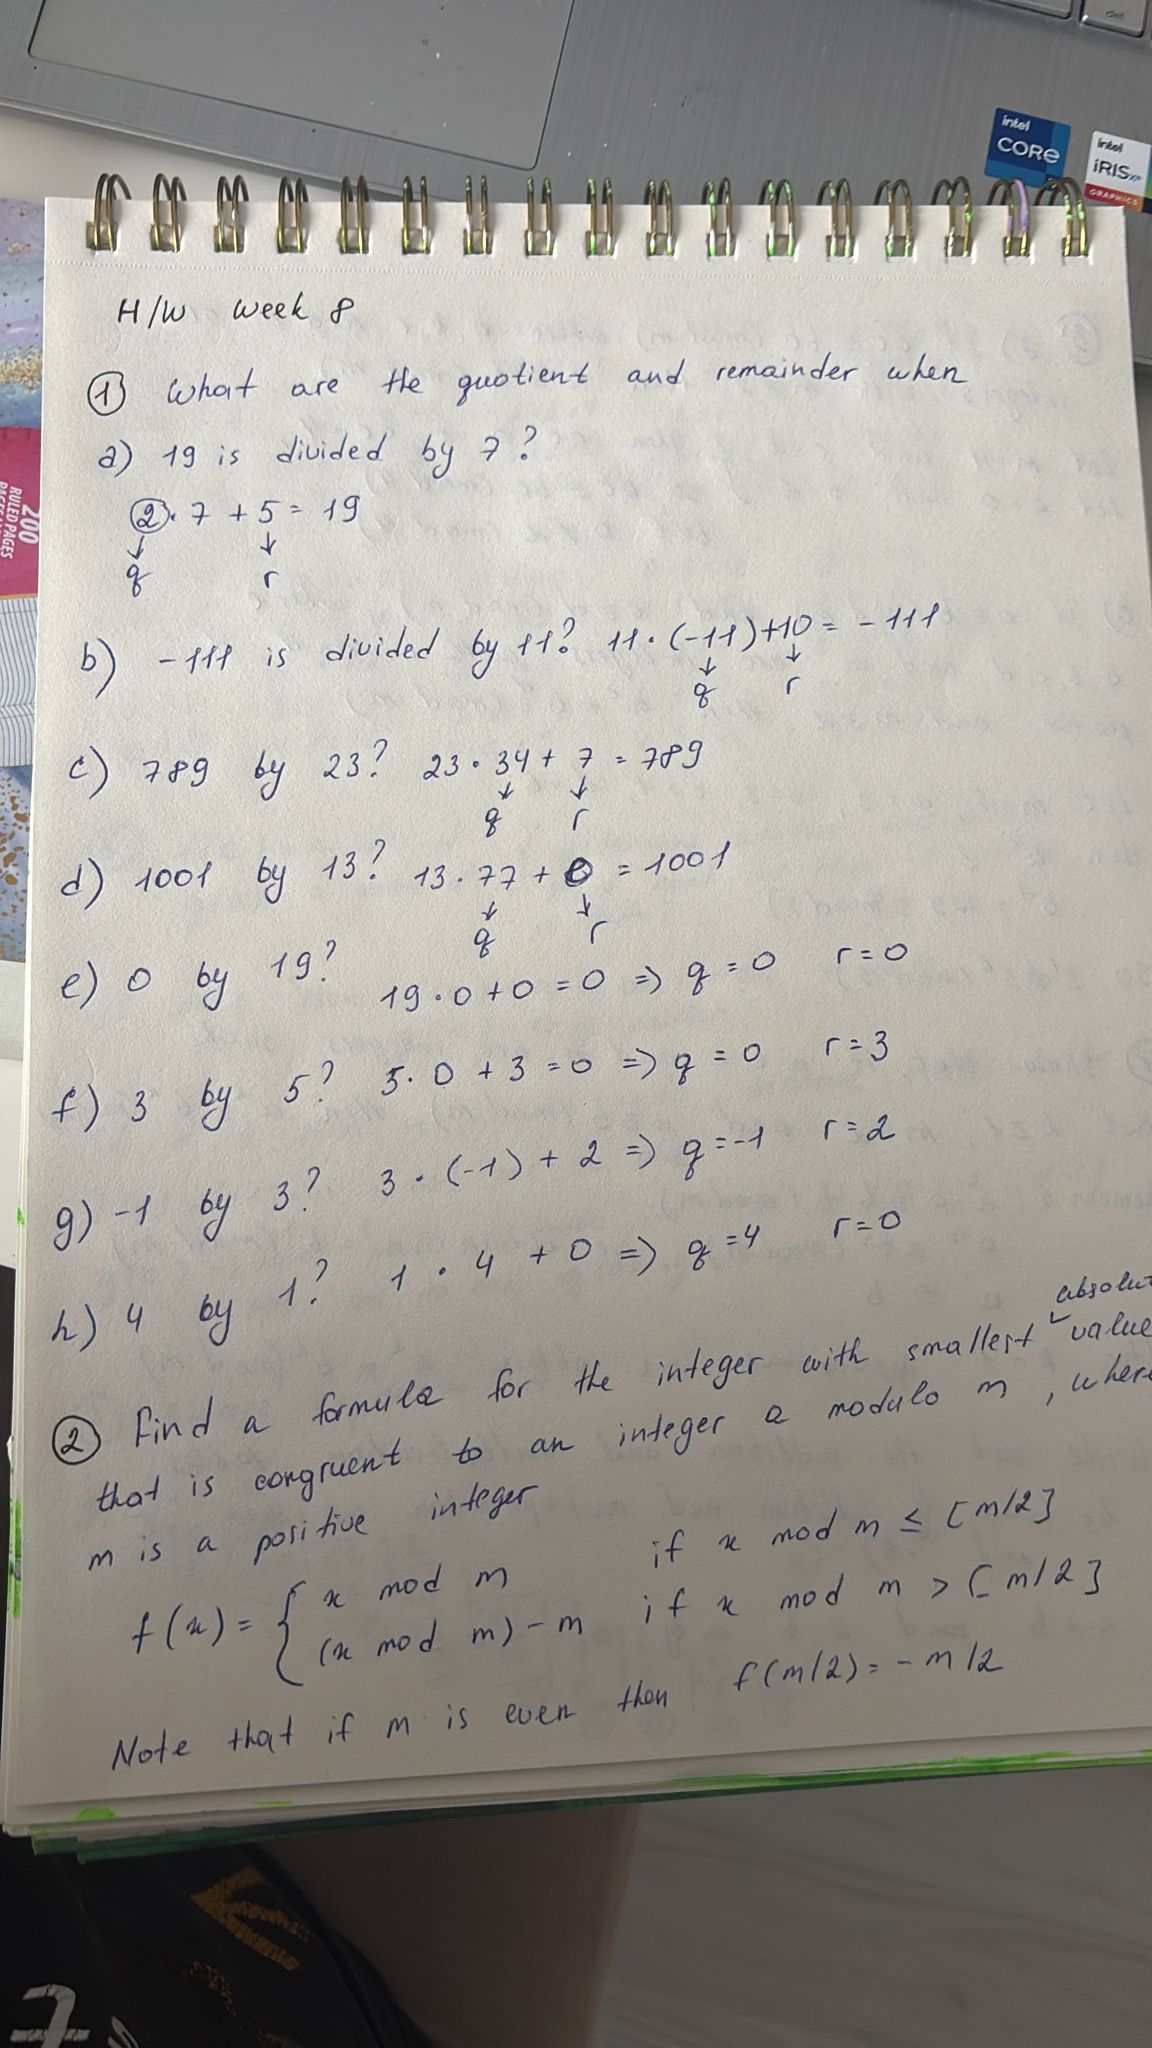 del
intel
CORe
intel
iRIS xe
GRAPHICS
200
RULED PAGES
H/W week 8
① What are the quotient and remainder when
a) 19 is divided by 7?
② · 7 + 5 = 19
↓ ↓
q r
b) -111 is divided by 11? 11 · (-11) + 10 = -111
↓ ↓
q r
c) 789 by 23? 23 · 34 + 7 = 789
↓ ↓
q r
d) 1001 by 13? 13 · 77 + 0 = 1001
↓ ↓
q r
e) 0 by 19? 19 · 0 + 0 = 0 => q = 0 r = 0
f) 3 by 5? 5 · 0 + 3 = 0 => q = 0 r = 3
g) -1 by 3? 3 · (-1) + 2 => q = -1 r = 2
h) 4 by 1? 1 · 4 + 0 => q = 4 r = 0
absolut
② Find a formula for the integer with smallest value
that is congruent to an integer a modulo m, where
m is a positive integer
f(x) = { x mod m if x mod m ≤ [m/2]
(x mod m) - m if x mod m > [m/2]
Note that if m is even then f(m/2) = -m/2